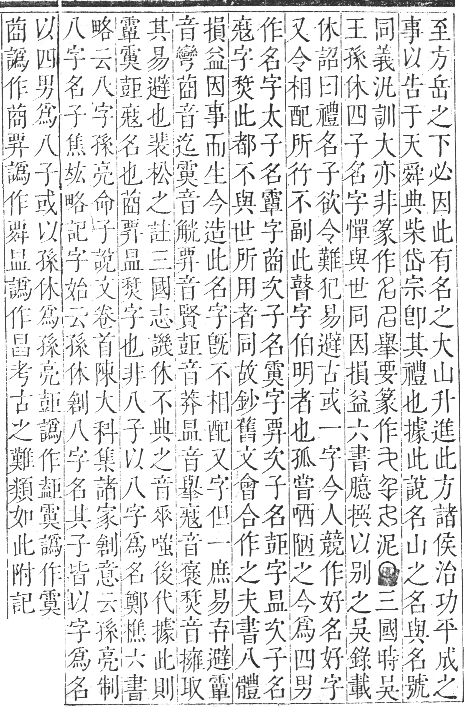 至方岳之下必因此有名之大山升進此方諸侯治功平成之
事以告于天舜典柴岱宗卽其禮也據此說名山之名與名號
同義沇訓大亦非篆作舉要篆作泥三國時吳
王孫休四子名字憚與世同因損益六書臆撰以别之吳錄載
休詔曰禮名子欲令難犯易避古或一字今人競作好名好字
又令相配所行不副此瞽字伯明者也孤嘗哂陋之今爲四男
作名字太子名𩅦字𦯶次子名𩃙字𢍏次子名壾字昷次子名
𡨥字㷏此都不與世所用者同故鈔舊文會合作之夫書八體
損益因事而生今造此名字旣不相配又字但一庶易弃避𩅦
音彎𦯶音迄𩃙音觥𢍏音賢壾音莽昷音舉𡨥音褒㷏音擁取
其易避也裴松之註三國志譏休不典之音乖嗤後代據此則
𩅦𩃙壾𡨥名也𦯶𢍏昷㷏字也非八子以八字爲名鄭樵六書
略云八字孫亮命子說文卷首陳大科集諸家創意云孫亮制
八字名子焦竑略記字始云孫休創八字名其子皆以字爲名
以四男爲八子或以孫休爲孫亮壾譌作𩃙譌作
𦯶譌作𢍏譌作昷譌作昌考古之難類如此附記